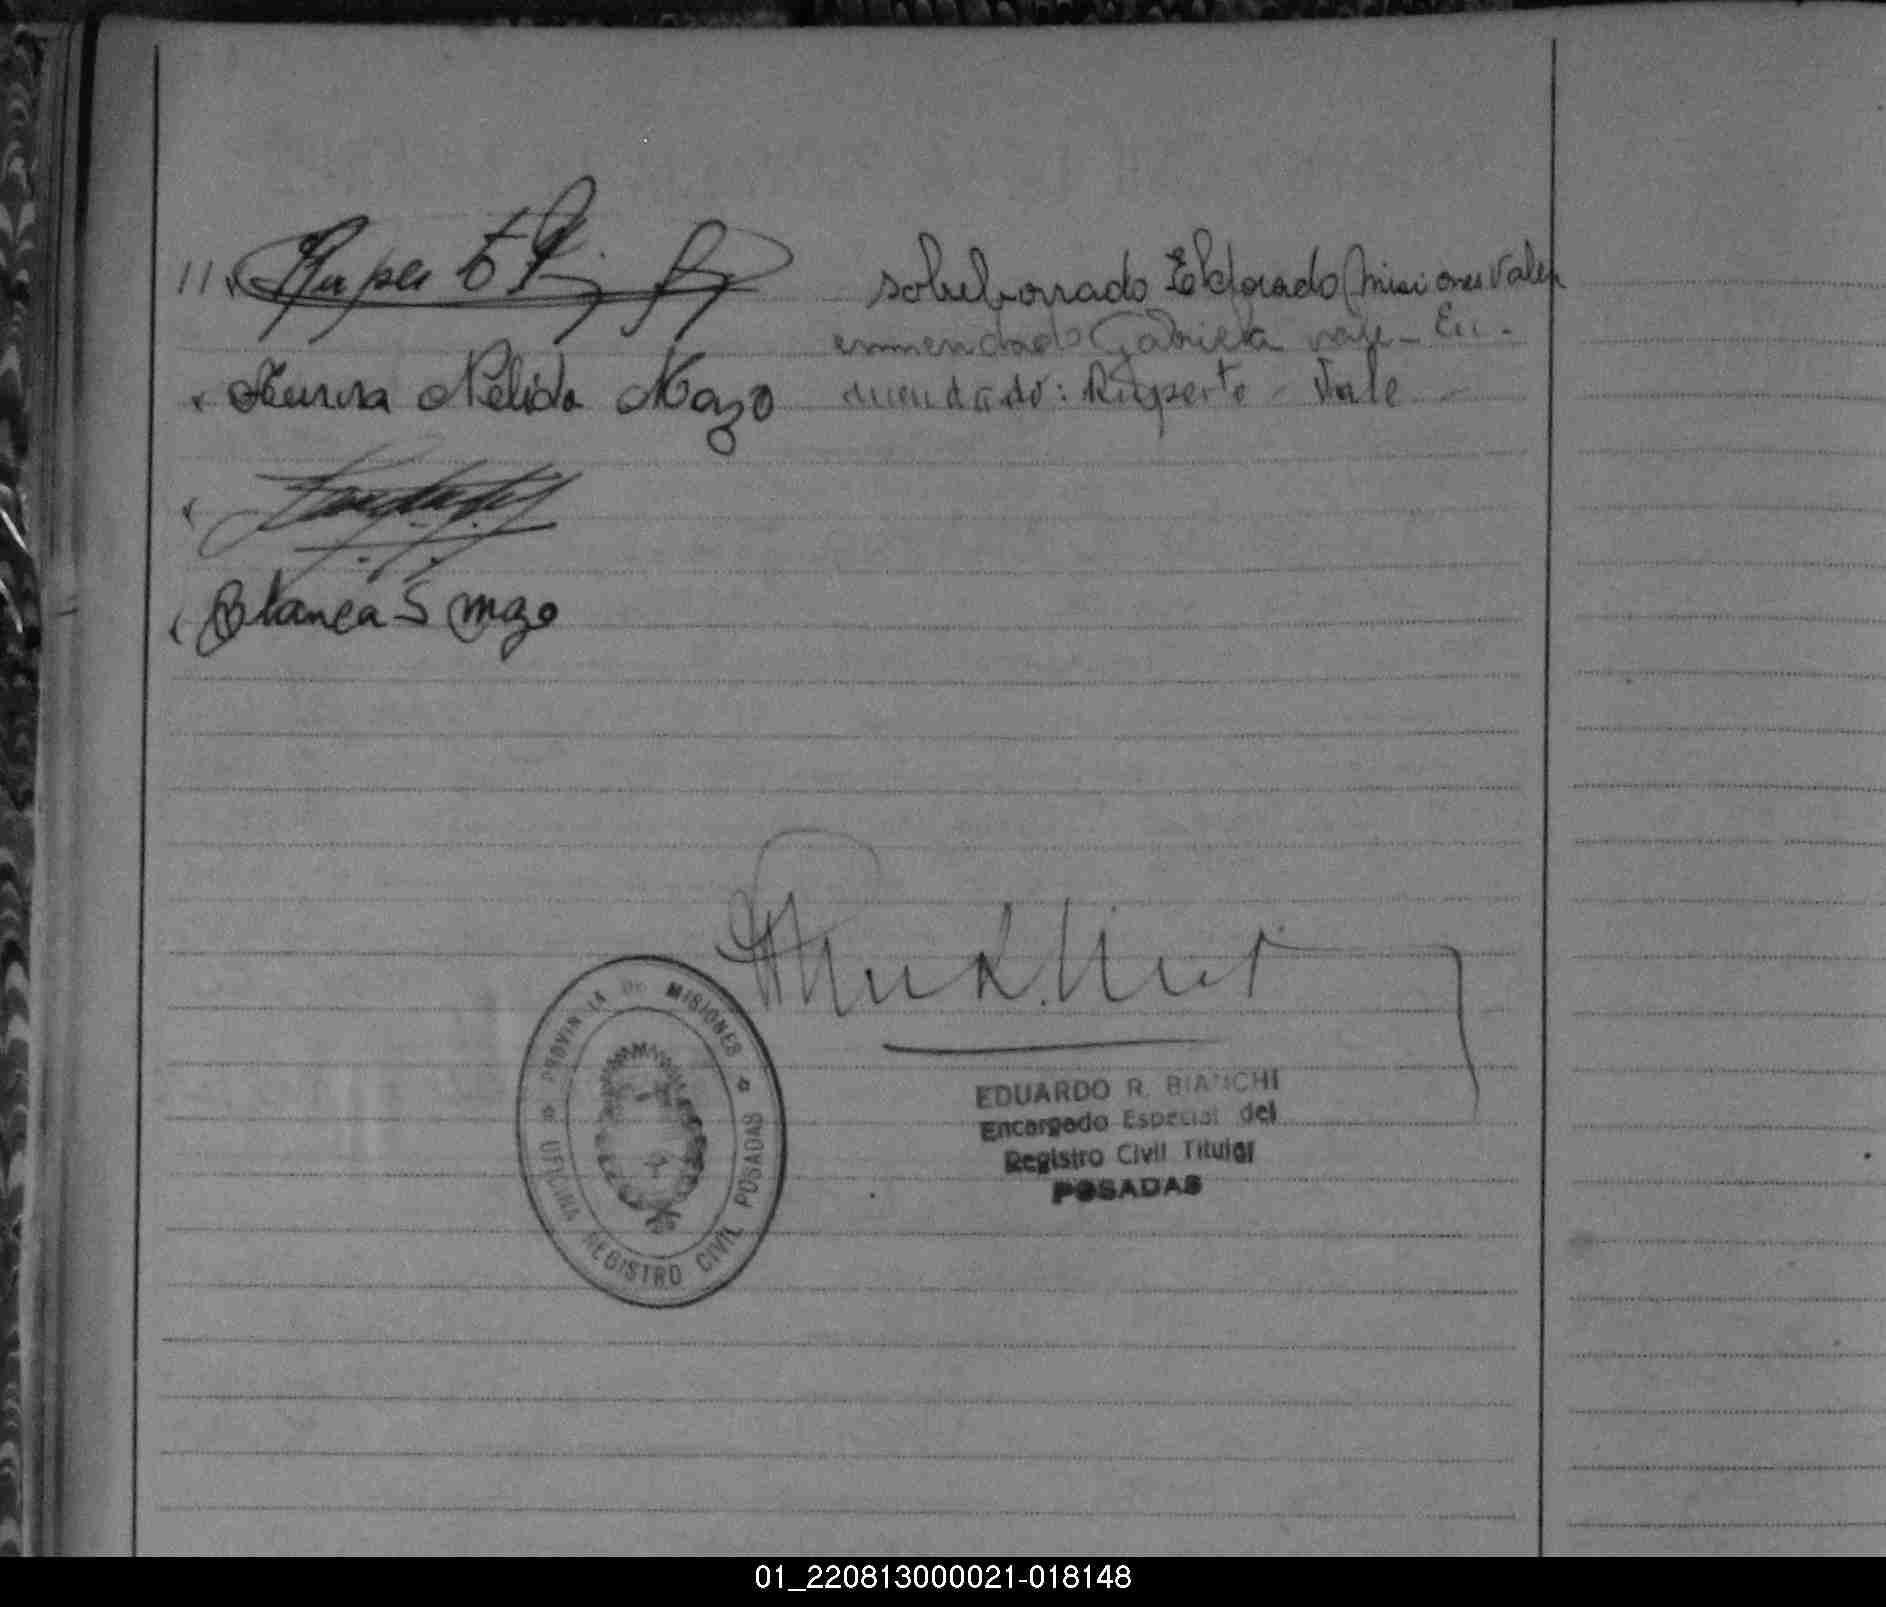 11
Ruperto
sobreborrado Eldorado Misiones vale
enmendado Gabriela vale - En-
mendado: Ruperto - Vale -
Nelida Mazo
Blanca S mazo
PROVINCIA DE MISIONES
OFICINA REGISTRO CIVIL POSADAS
EDUARDO R. BIANCHI
Encargado Especial del
Registro Civil Titular
POSADAS
01_220813000021-018148